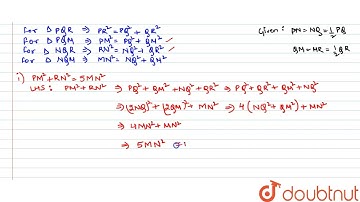 for △ PQR ⇒ PR² = PQ² + QR²
for △ PQM ⇒ PM² = PQ² + QM² ✓
for △ NQR ⇒ RN² = NQ² + QR² ✓
for △ NQM ⇒ MN² = NQ² + QM²
Given : PN = NQ = 1/2 PQ
QM = MR = 1/2 QR
i) PM² + RN² = 5MN²
LHS : PM² + RN² ⇒ PQ² + QM² + NQ² + QR² ⇒ PQ² + QR² + QM² + NQ²
⇒ (2NQ)² + (2QM)² + MN² ⇒ 4(NQ² + QM²) + MN²
⇒ 4MN² + MN²
⇒ 5MN²
doubtnut